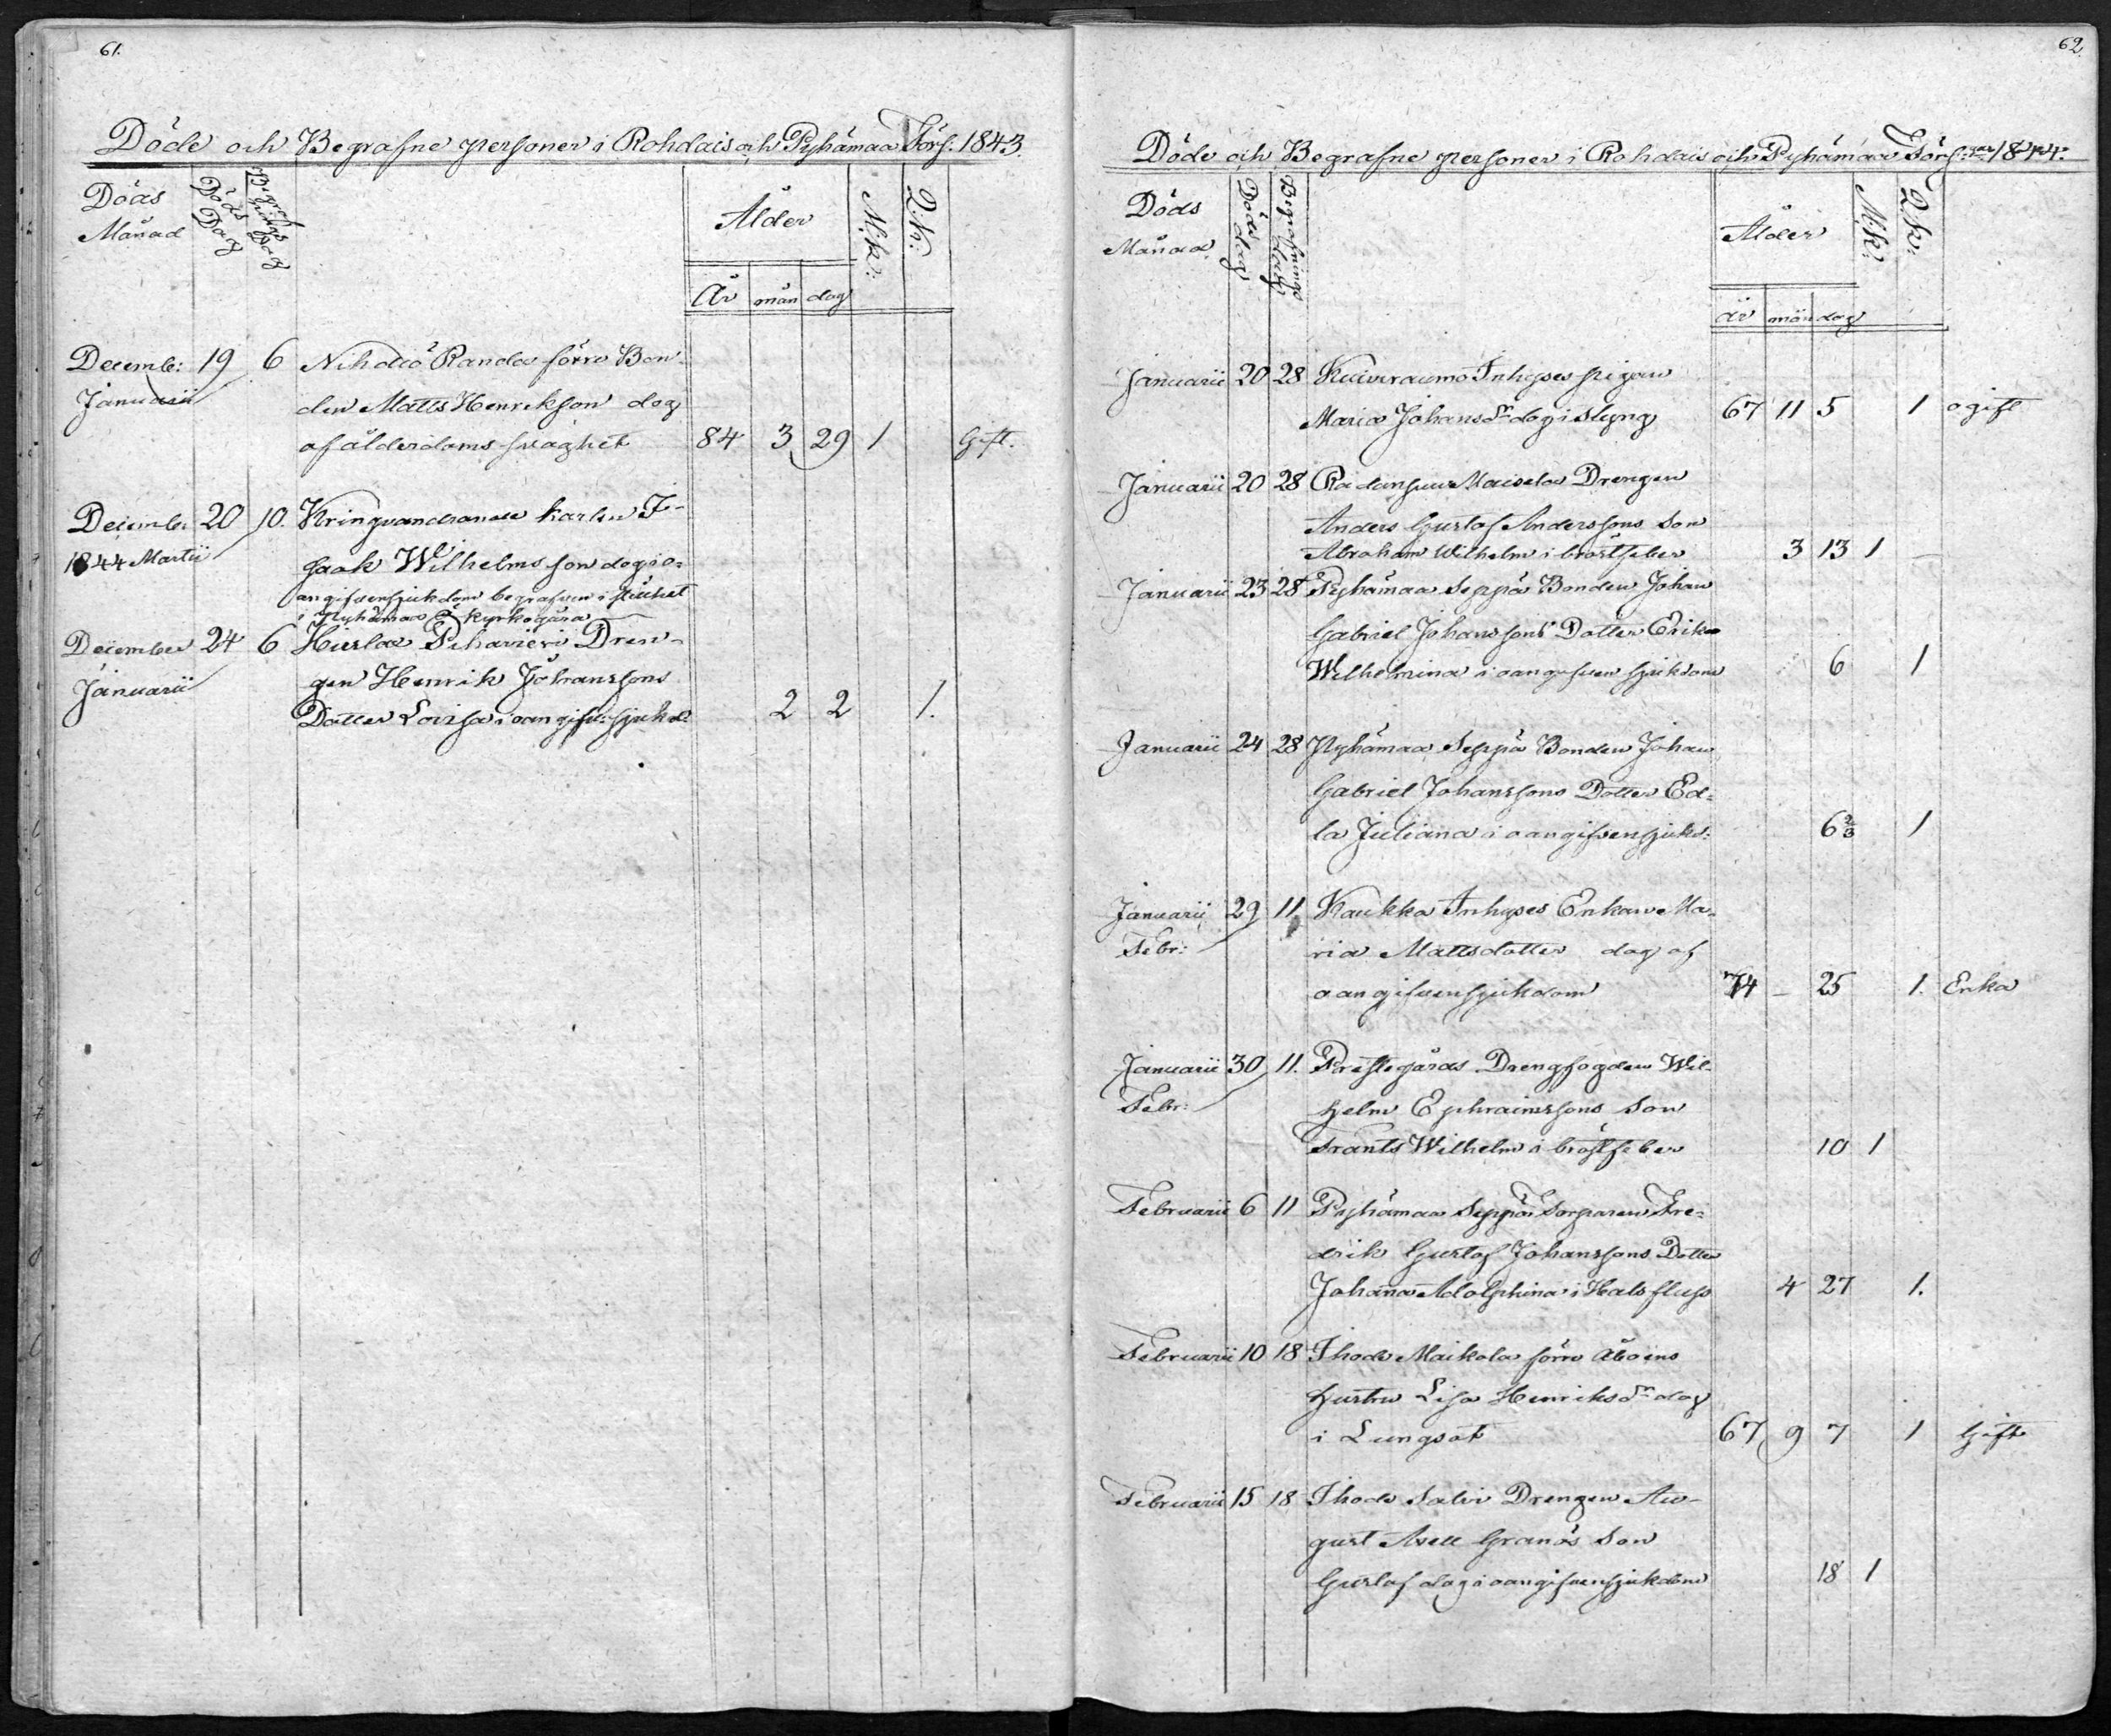 61.
Döde och Begrafne personer i Rohdais och Pyhämaa Förs: 1843.
Döds Månad
Döds Dag
Begrafnings Dag
Ålder
M:k:
Q:k:
År mån dag
Decemb: 19 6 Nihdiö Randa förre Bon-
Januarii den Matts Henrikson dog
af ålderdoms svaghet 84 3 29 1 Gift.
Decemb. 20 10. Kringvandrande karlen I-
1844 Martii saak Wilhelmsson dog i o-
angifven sjukdom begrafven i stillhet
i Pyhämaa kyrkogård
December 24 6 Hirslax Pihavieri Dren-
Januarii gen Henrik Johanssons
Dotter Lovisa i oangifv: sjukd: 2 2 1.
62.
Döde och Begrafne personer i Rohdais och Pyhämaa Förs:gar 1844.
Döds Månad
Döds dag
Begrafnings dag
Ålder
M:k:
Q:k:
år mån dag
Januarii 20 28 Kuivrauma Inhyses pigan
Maria Johansdr dog i styng 67 11 5 1 ogift
Januarii 20 28 Radansuu Maisela Drengen
Anders Gustaf Anderssons Son
Abraham Wilhelm i bröstfeber 3 13 1
Januarii 23 28 Pyhämaa Seppä Bonden Johan
Gabriel Johanssons Dotter Erika
Wilhelmina i oangifven sjukdom 6 1
Januarii 24 28 Pyhämaa Seppä Bonden Johan
Gabriel Johanssons Dotter Ed-
la Juliana i oangifven sjukd: 6 2/3 1
Januarii 29 11. Kaukka Inhyses Enkan Ma-
Febr: ria Mattsdotter dog af
oangifven sjukdom 74 – 25 1. Enka
Januarii 30 11. Prestegårds Drengfogden Wil-
Febr: helm Ephraimssons Son
Frants Wilhelm i bröstfeber 10 1
Februarii 6 11 Pyhämaa Seppä Torparen Fre-
drik Gustaf Johanssons Dotter
Johanna Adolphina i Halsfluss 4 27 1.
Februarii 10 18 Ihode Maikola förre Åboens
hustru Lisa Henriksdr dog
i Lungsot 67 9 7 1 Gift
Februarii 15 18 Ihode Salvi Drengen Au-
gust Axell Granös Son
Gustaf dog i oangifven sjukdom 18 1